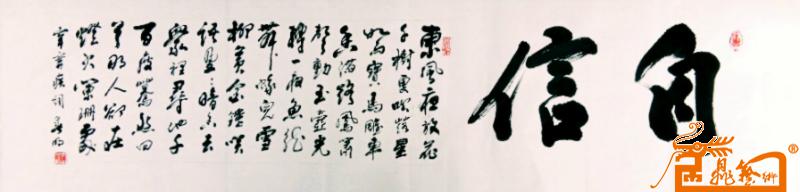 自信
東風夜放花
千樹更吹落星
如雨寶馬雕車
香滿路鳳簫
聲動玉壺光
轉一夜魚龍
舞蛾兒雪
柳黃金縷笑
語盈盈暗香去
衆裡尋他千
百度驀然回
首那人卻在
燈火闌珊處
辛棄疾詞